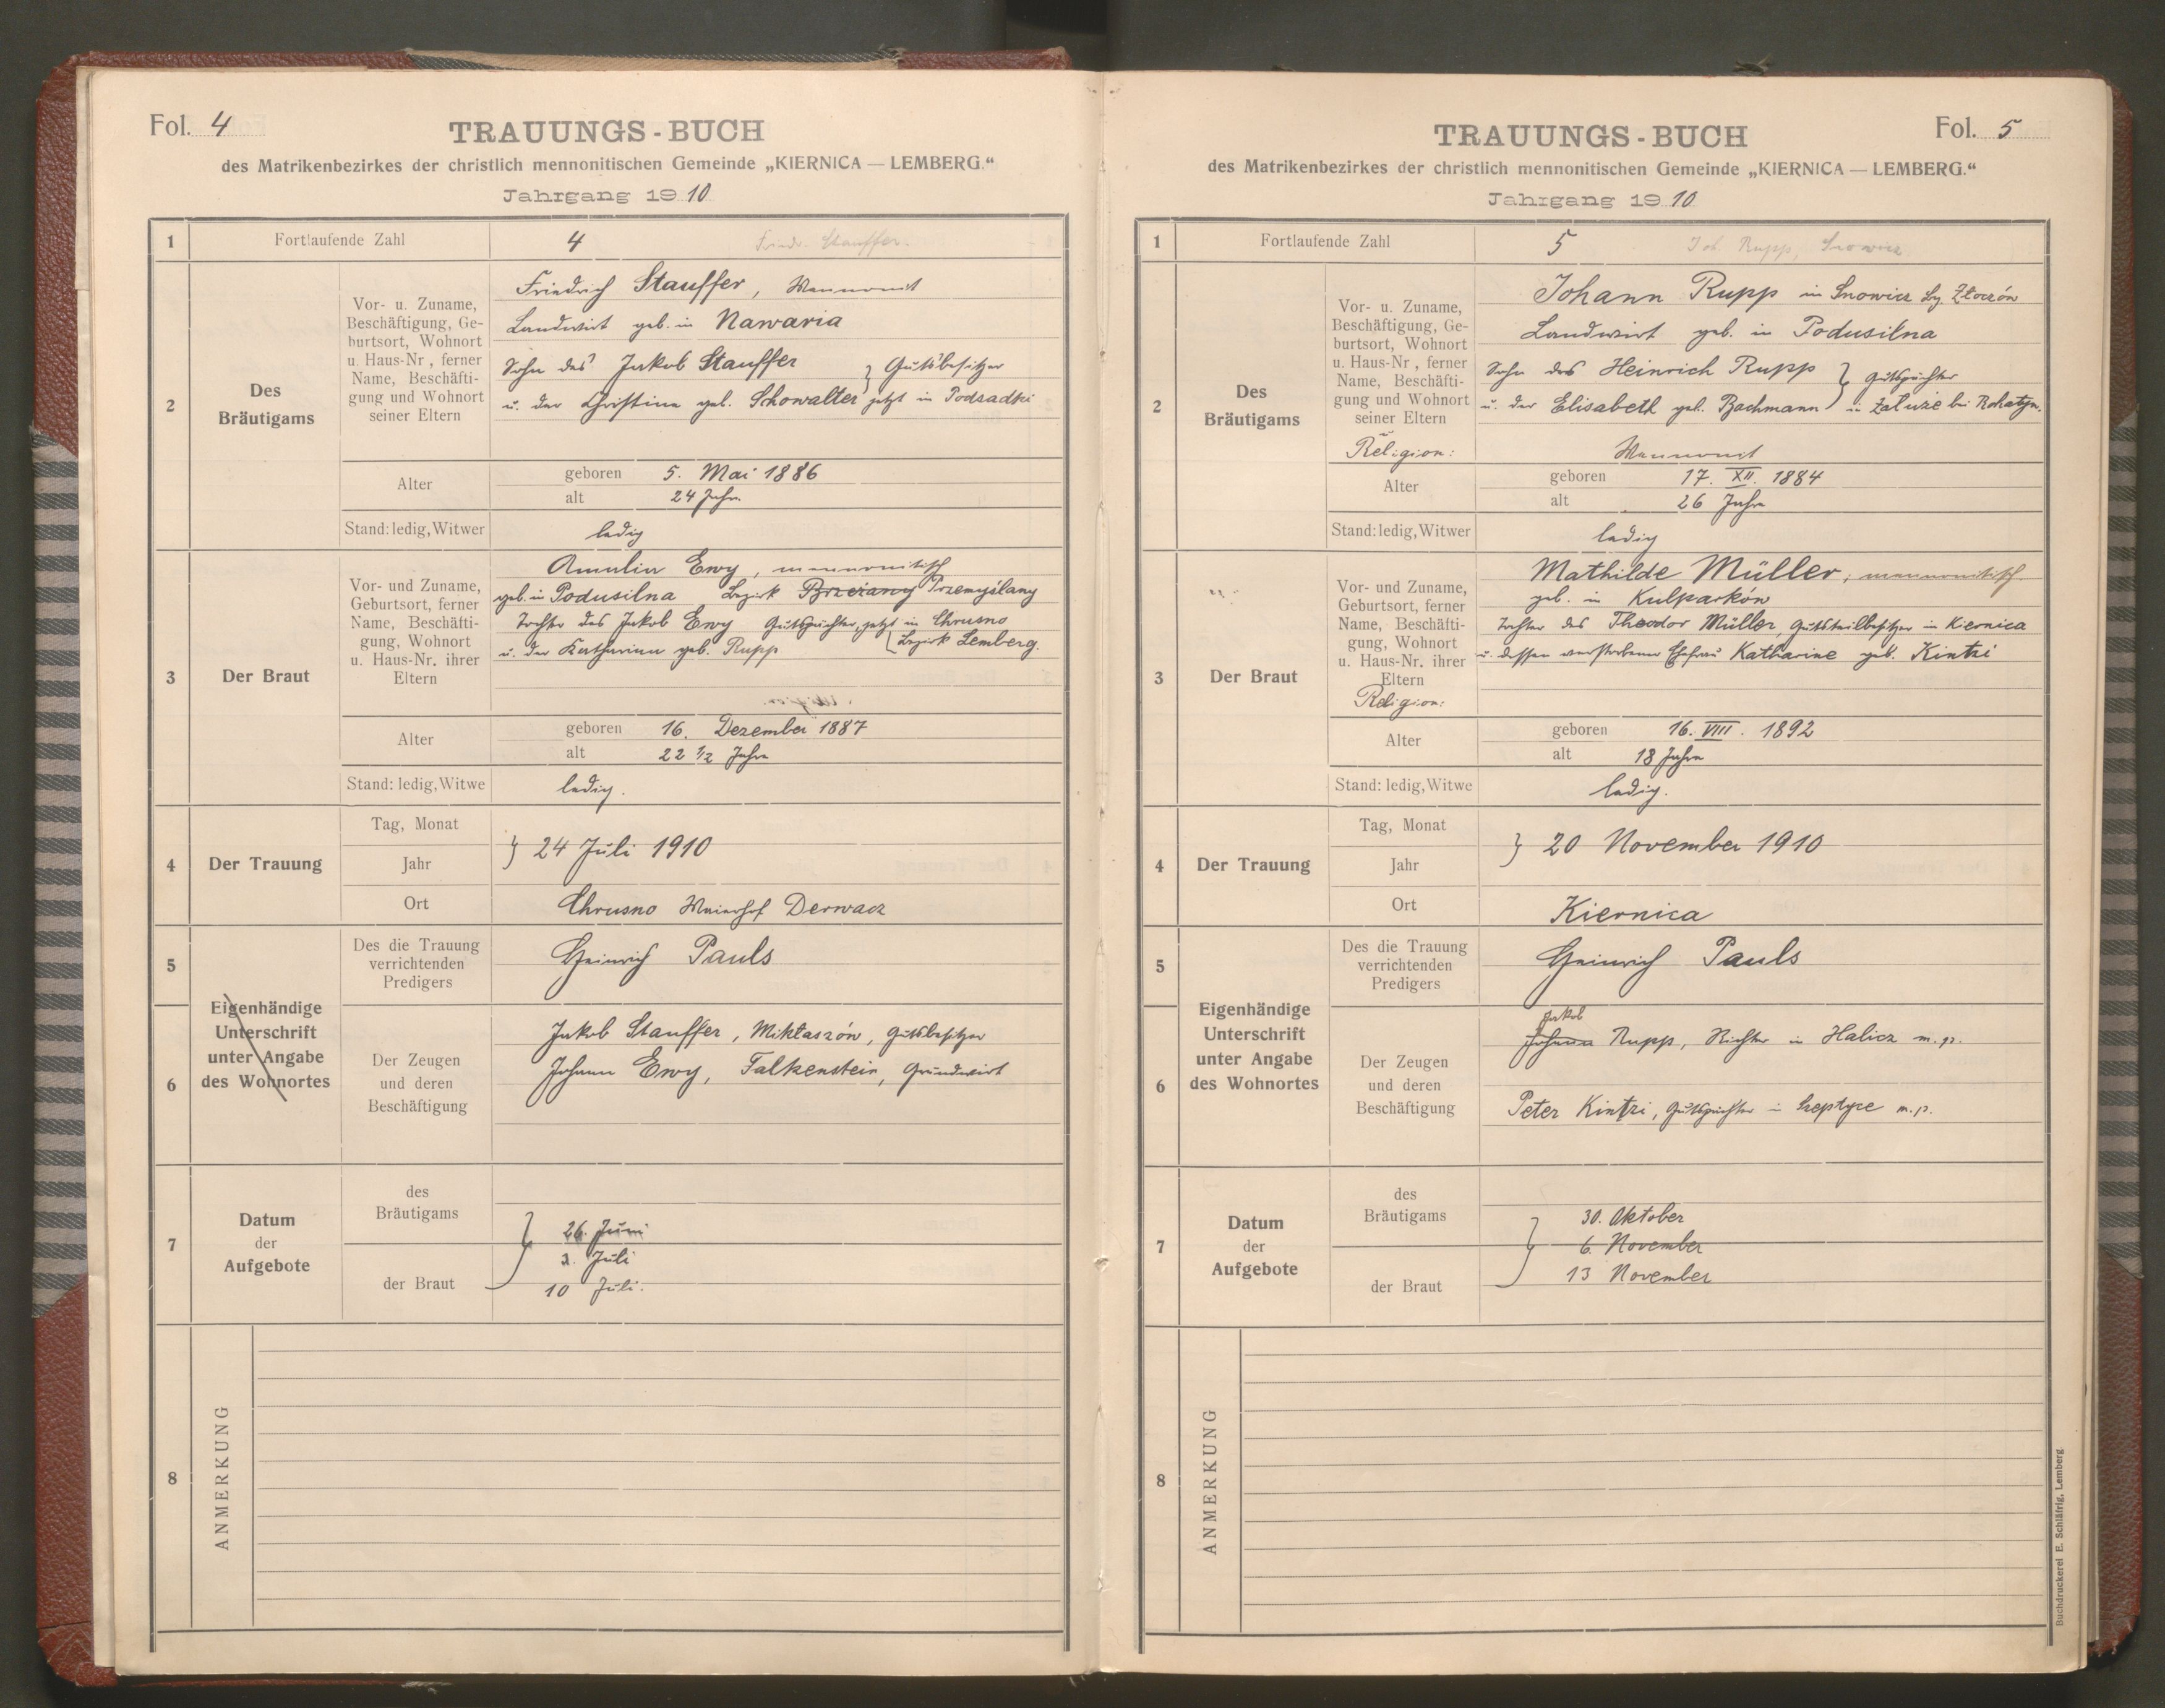 Fol. 4
TRAUUNGS-BUCH
des Matrikenbezirkes der christlich mennonitischen Gemeinde „KIERNICA — LEMBERG.“
Jahrgang 1910
1 Fortlaufende Zahl 4 Friedr. Stauffer.
2 Des Bräutigams
Vor- u. Zuname,
Beschäftigung, Ge-
burtsort, Wohnort
u. Haus-Nr, ferner
Name, Beschäfti-
gung und Wohnort
seiner Eltern
Friedrich Stauffer, Mennonit
Landwirt geb. in Nawaria
Sohn des Jakob Stauffer } Gutsbesitzer
u. der Christine geb. Schowalter jetzt in Podsadki
Alter
geboren 5. Mai 1886
alt 24 Jahre
Stand: ledig, Witwer ledig
3 Der Braut
Vor- und Zuname,
Geburtsort, ferner
Name, Beschäfti-
gung, Wohnort
u. Haus-Nr. ihrer
Eltern
Amalie Ewy, mennonitisch
geb. in Podusilna Bezirk Brzeżany Przemyślany
Tochter des Jakob Ewy Gutspächter, jetzt in Chrusno
u. der Katharina geb. Rupp Bezirk Lemberg.
Alter
geboren 16. Dezember 1887
alt 22 1/2 Jahre
Stand: ledig, Witwe ledig.
4 Der Trauung
Tag, Monat
Jahr
} 24 Juli 1910
Ort Chrusno Maierhof Derwacz
5 Des die Trauung
verrichtenden
Predigers
Heinrich Pauls
6 Eigenhändige
Unterschrift
unter Angabe
des Wohnortes
Der Zeugen
und deren
Beschäftigung
Jakob Stauffer, Mikłaszów, Gutsbesitzer
Johann Ewy, Falkenstein, Grundwirt
7 Datum
der
Aufgebote
des
Bräutigams
der Braut
26. Juni
3. Juli
10 Juli.
8 ANMERKUNG
Fol. 5
TRAUUNGS-BUCH
des Matrikenbezirkes der christlich mennonitischen Gemeinde „KIERNICA — LEMBERG.“
Jahrgang 1910
1 Fortlaufende Zahl 5 Joh. Rupp, Snowicz
2 Des Bräutigams
Vor- u. Zuname,
Beschäftigung, Ge-
burtsort, Wohnort
u. Haus-Nr, ferner
Name, Beschäfti-
gung und Wohnort
seiner Eltern
Religion:
Johann Rupp in Snowicz bz. Złoczów
Landwirt geb. in Podusilna
Sohn des Heinrich Rupp } Gutspächter
u. der Elisabeth geb. Bachmann in Załuże bei Rohatyn.
Mennonit
Alter
geboren 17. XII. 1884
alt 26 Jahre
Stand: ledig, Witwer ledig
3 Der Braut
Vor- und Zuname,
Geburtsort, ferner
Name, Beschäfti-
gung, Wohnort
u. Haus-Nr. ihrer
Eltern
Religion:
Mathilde Müller, mennonitisch
geb. in Kulparków
Tochter des Theodor Müller, Gutsteilbesitzer in Kiernica
u. dessen verstorbener Ehefrau Katharine geb. Kintzi
Alter
geboren 16. VIII. 1892
alt 18 Jahre
Stand: ledig, Witwe ledig.
4 Der Trauung
Tag, Monat
Jahr
} 20 November 1910
Ort Kiernica
5 Des die Trauung
verrichtenden
Predigers
Heinrich Pauls
6 Eigenhändige
Unterschrift
unter Angabe
des Wohnortes
Der Zeugen
und deren
Beschäftigung
Jakob
Johann Rupp, Richter in Halicz m. p.
Peter Kintzi, Gutspächter in Szeptyce m. p.
7 Datum
der
Aufgebote
des
Bräutigams
der Braut
30. Oktober
6. November
13 November
8 ANMERKUNG
Buchdruckerei E. Schläfrig, Lemberg